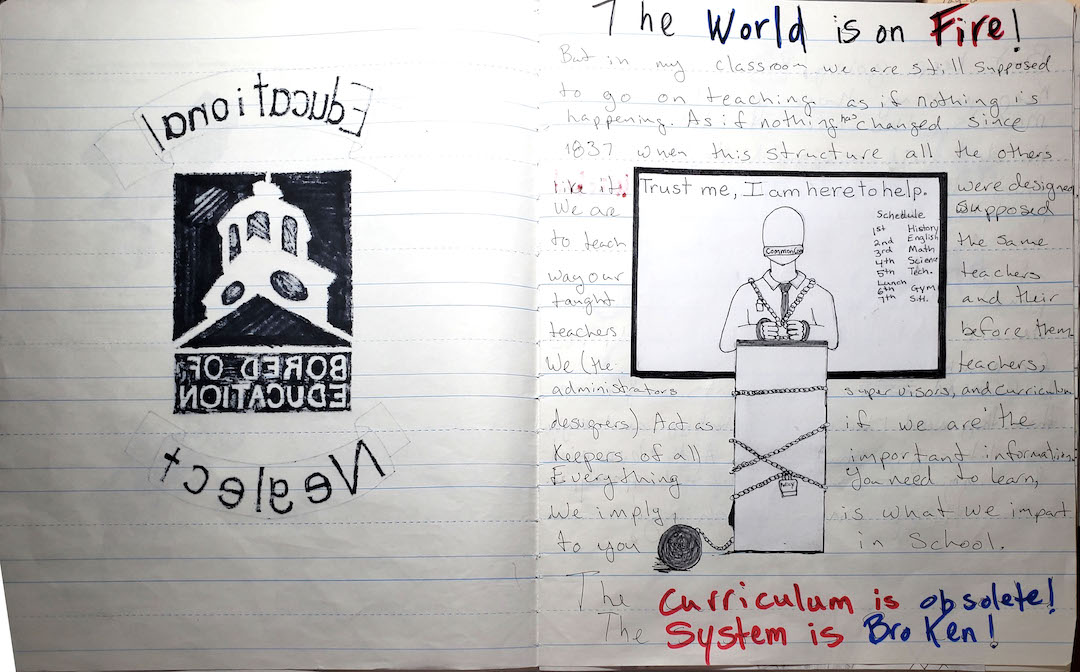 Educational
BORED OF
EDUCATION
Neglect
The World is on Fire!
But in my classroom we are still supposed
to go on teaching as if nothing is
happening. As if nothing has changed since
1837 when this structure all the others
like it! were designed.
We are supposed
to teach the same
way our teachers
taught and their
teachers before them.
We (the teachers,
administrators supervisors, and curriculum
designers) Act as if we are the
Keepers of all important information.
Everything You need to learn,
We imply, is what we impart
to you in School.
Trust me, I am here to help.
Common Core
Schedule
1st History
2nd English
3rd Math
4th Science
5th Tech.
Lunch
6th Gym
7th S.H.
The Curriculum is obsolete!
The System is Broken!